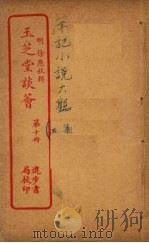 筆記小說大觀
明 徐應秋輯
玉芝堂談薈
第十冊
進步書
局校印